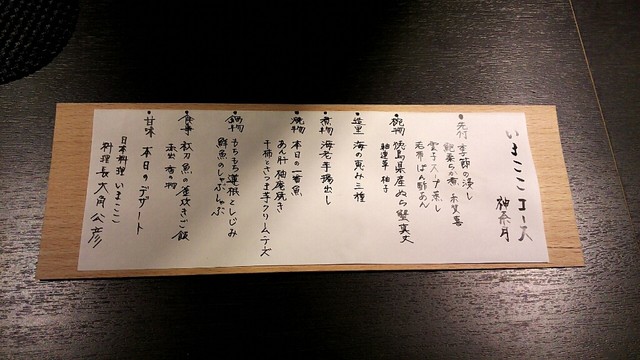 いまここコース
神奈月
・先付 季節の浸し
鮑柔らか煮 赤芽芋
茸子スープ蒸し
若布ぽん酢あん
・椀物 徳島県産めら蟹真丈
軸蓮草 柚子
・造里 海の恵み三種
・煮物 海老芋揚出し
・焼物 本日の一番魚
あん肝 柚庵焼き
干柿とさつま芋クリームチーズ
・鍋物 もちもち蓮根としじみ
鮮魚のしゃぶしゃぶ
・食事 秋刀魚の釜炊きご飯
赤出 香の物
・甘味 本日のデザート
日本料理 いまここ
料理長 大角公彦